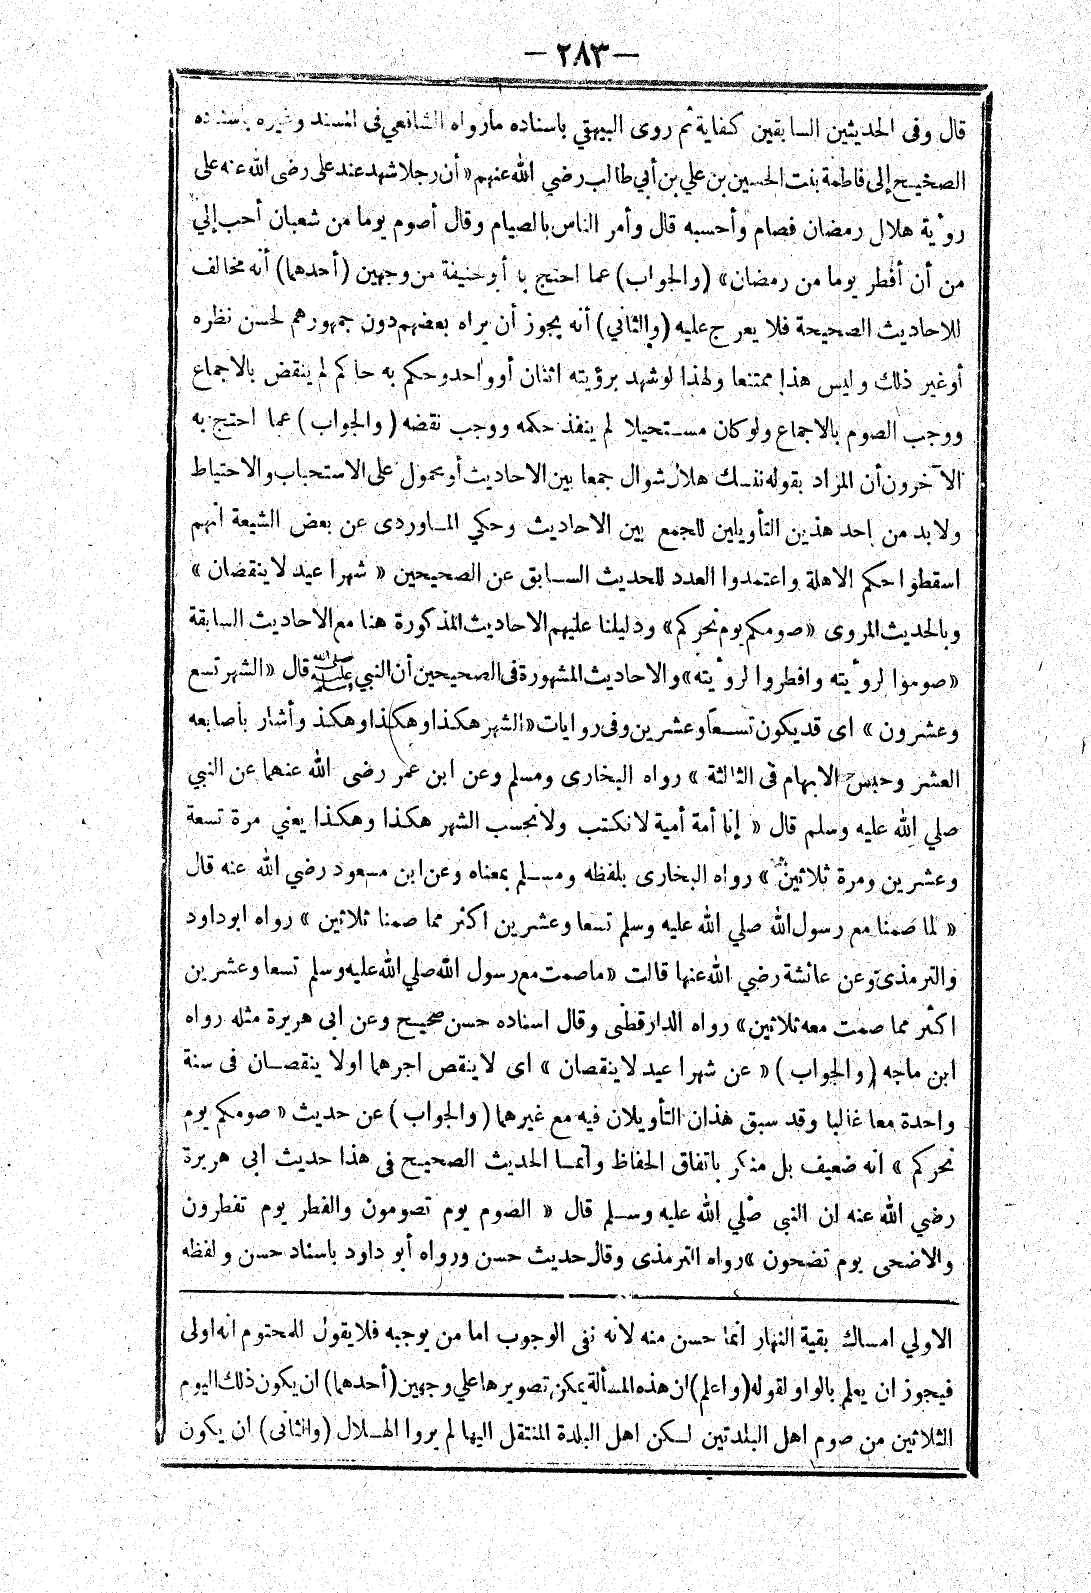 — ٢٨٣ —
قال وفى الحديثين السابقين كفاية ثم روى البيهقي باسناده مارواه الشافعي فى المسند وغيره باسناده
الصحيح إلى فاطمة بنت الحسين بن علي بن أبي طالب رضي الله عنهم « أن رجلا شهد عند على رضى الله عنه على
رؤية هلال رمضان فصام وأحسبه قال وأمر الناس بالصيام وقال أصوم يوما من شعبان أحب إلي
من أن أفطر يوما من رمضان » (والجواب) عما احتج با أبو حنيفة من وجهين (أحدهما) أنه مخالف
للاحاديث الصحيحة فلا يعرج عليه (والثاني) أنه يجوز أن يراه بعضهم دون جمهورهم لحسن نظره
أوغير ذلك وليس هذا ممتنعا ولهذا لوشهد برؤيته اثنان أو واحد وحكم به حاكم لم ينقض بالاجماع
ووجب الصوم بالاجماع ولوكان مستحيلا لم ينفذ حكمه ووجب نقضه (والجواب) عما احتج به
الآخرون أن المراد بقوله نفسك هلال شوال جمعا بين الاحاديث أو محمول على الاستحباب والاحتياط
ولا بد من احد هذين التأويلين للجمع بين الاحاديث وحكي الماوردى عن بعض الشيعة انهم
اسقطوا حكم الاهلة واعتمدوا العدد للحديث السابق عن الصحيحين « شهرا عيد لا ينقضان »
وبالحديث المروى « صومكم يوم نحركم » ودليلنا عليهم الاحاديث المذكورة هنا مع الاحاديث السابقة
« صوموا لرؤيته وافطروا لرؤيته » والاحاديث المشهورة فى الصحيحين أن النبي صلى الله عليه وسلم قال « الشهر تسع
وعشرون » اى قد يكون تسعاً وعشرين وفى روايات « الشهر هكذا وهكذا وهكذ وأشار بأصابعه
العشر وحبس الابهام فى الثالثة » رواه البخارى ومسلم وعن ابن عمر رضى الله عنهما عن النبي
صلي الله عليه وسلم قال « إنا أمة أمية لا نكتب ولا نحسب الشهر هكذا وهكذا يعني مرة تسعة
وعشرين ومرة ثلاثين » رواه البخارى بلفظه ومسلم بمعناه وعن ابن مسعود رضي الله عنه قال
« لما صمنا مع رسول الله صلي الله عليه وسلم تسعا وعشرين اكثر مما صمنا ثلاثين » رواه ابو داود
والترمذى وعن عائشة رضي الله عنها قالت « ما صمت مع رسول الله صلي الله عليه وسلم تسعا وعشرين
اكثر مما صمت معه ثلاثين » رواه الدار قطنى وقال اسناده حسن صحيح وعن ابى هريرة مثله رواه
ابن ماجه (والجواب) « عن شهرا عيد لا ينقصان » اى لا ينقص اجرهما اولا ينقصان فى سنة
واحدة معا غالبا وقد سبق هذان التأويلان فيه مع غيرهما (والجواب) عن حديث « صومكم يوم
نحركم » انه ضعيف بل منكر باتفاق الحفاظ وأنما الحديث الصحيح فى هذا حديث ابى هريرة
رضي الله عنه ان النبى صلي الله عليه وسلم قال « الصوم يوم تصومون والفطر يوم تفطرون
والاضحى يوم تضحون » رواه الترمذى وقال حديث حسن ورواه أبو داود باسناد حسن ولفظه
الاولي امساك بقية النهار انما حسن منه لأنه نفى الوجوب اما من يوجبه فلا يقول للمحتوم انه اولى
فيجوز ان يعلم بالواو لقوله (واعلم) ان هذه المسألة يمكن تصويرها علي وجهين (أحدهما) ان يكون ذلك اليوم
الثلاثين من صوم اهل البلدتين لكن اهل البلدة المنتقل اليها لم يروا الهلال (والثانى) ان يكون